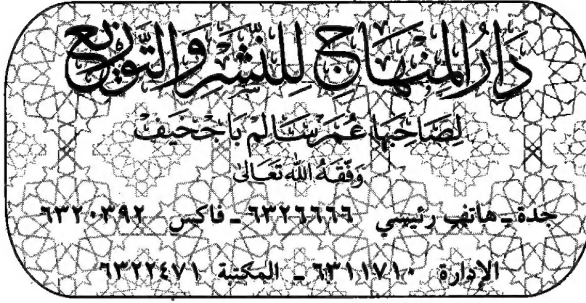 دَارُ المِنْهَاجِ لِلنَّشْرِ وَالتَّوْزِيعِ
لِصَاحِبِهَا عُمَرْ سَالِمْ بَاجْخَيفْ
وَفَّقَهُ اللهُ تَعَالَى
جدة - هاتف رئيسي ٦٣٢٦٦٦٦ - فاكس ٦٣٢٠٣٩٢
الإدارة ٦٣١١٧١٠ - المكتبة ٦٣٢٢٤٧١